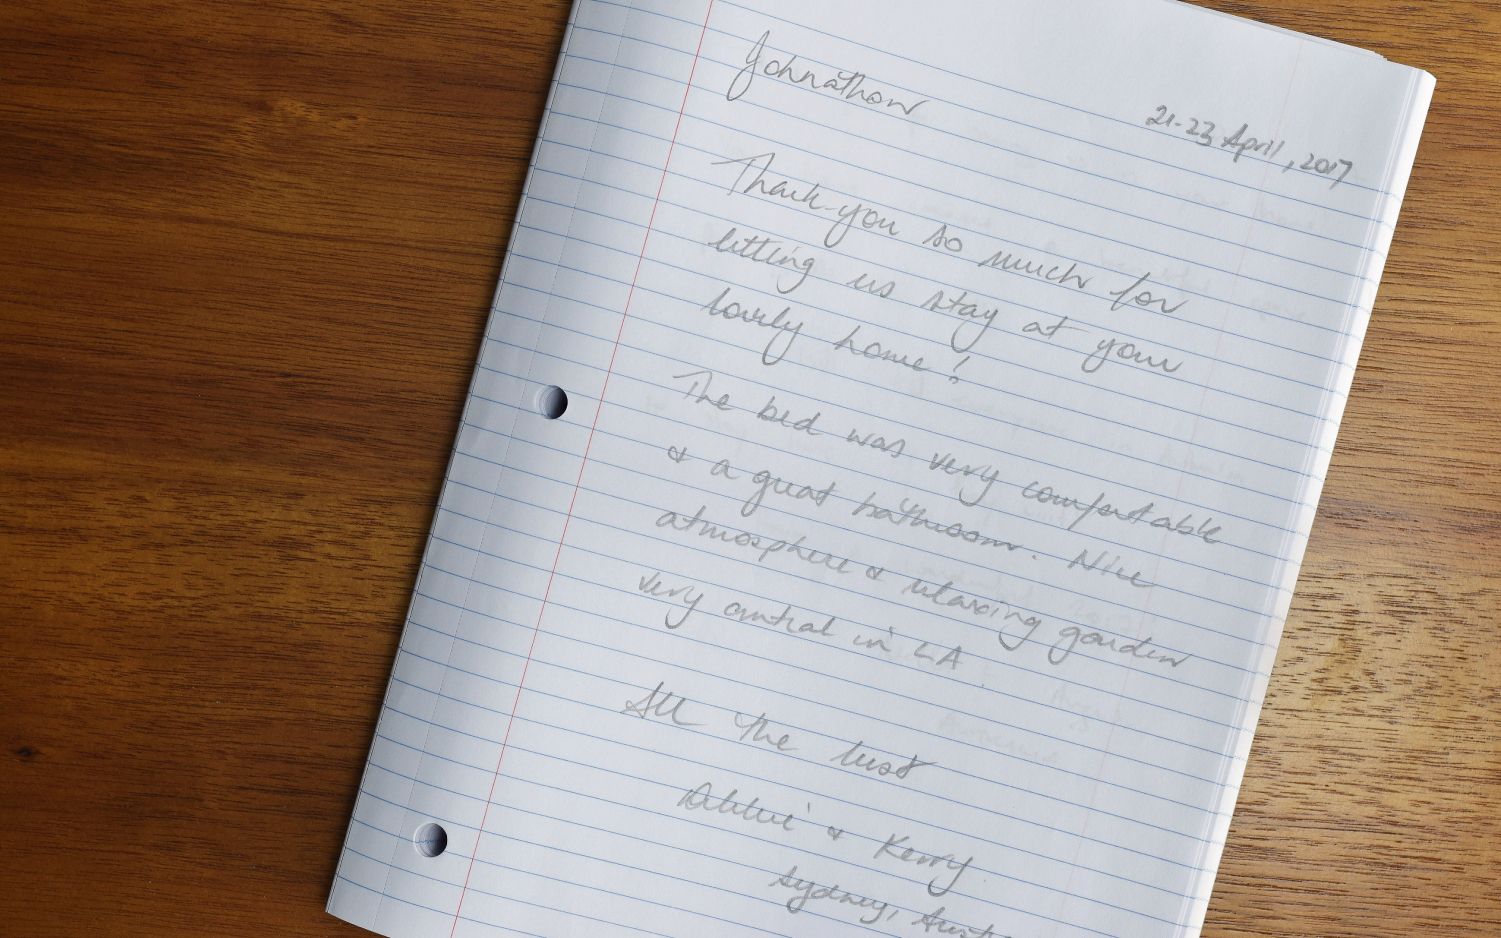 Johnathon
21-23 April, 2017
Thank-you so much for
letting us stay at your
lovely home!
The bed was very comfortable
& a great bathroom. Nice
atmosphere & relaxing garden
very central in LA.
All the best
Debbie & Kerry
Sydney,